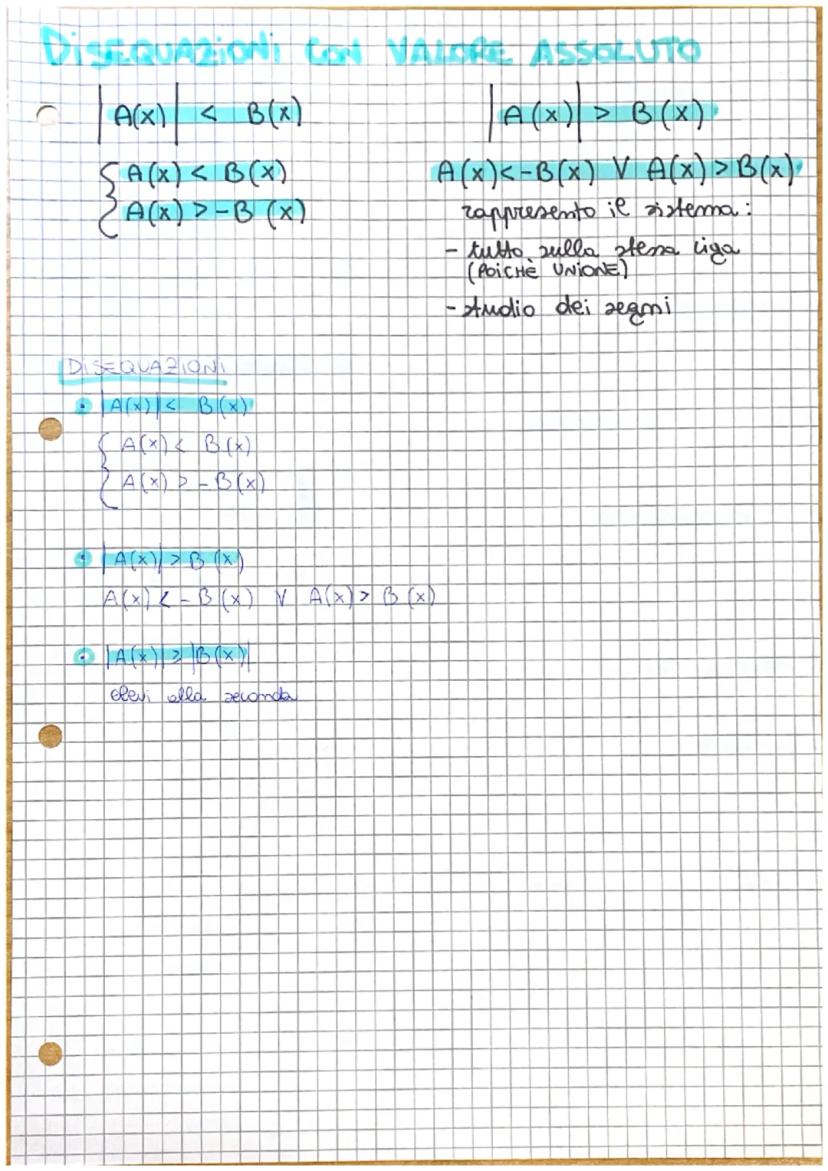 DISEQUAZIONI CON VALORE ASSOLUTO
|A(x)| < B(x)
{ A(x) < B(x)
A(x) > -B(x)
|A(x)| > B(x)
A(x)<-B(x) V A(x)>B(x)
rappresento il sistema:
- tutto sulla stessa riga
(POICHÈ UNIONE)
- studio dei segni
DISEQUAZIONI
• |A(x)| < B(x)
{ A(x) < B(x)
A(x) > -B(x)
• |A(x)| > B(x)
A(x) < -B(x) V A(x) > B(x)
• |A(x)| ≥ |B(x)|
elevi alla seconda